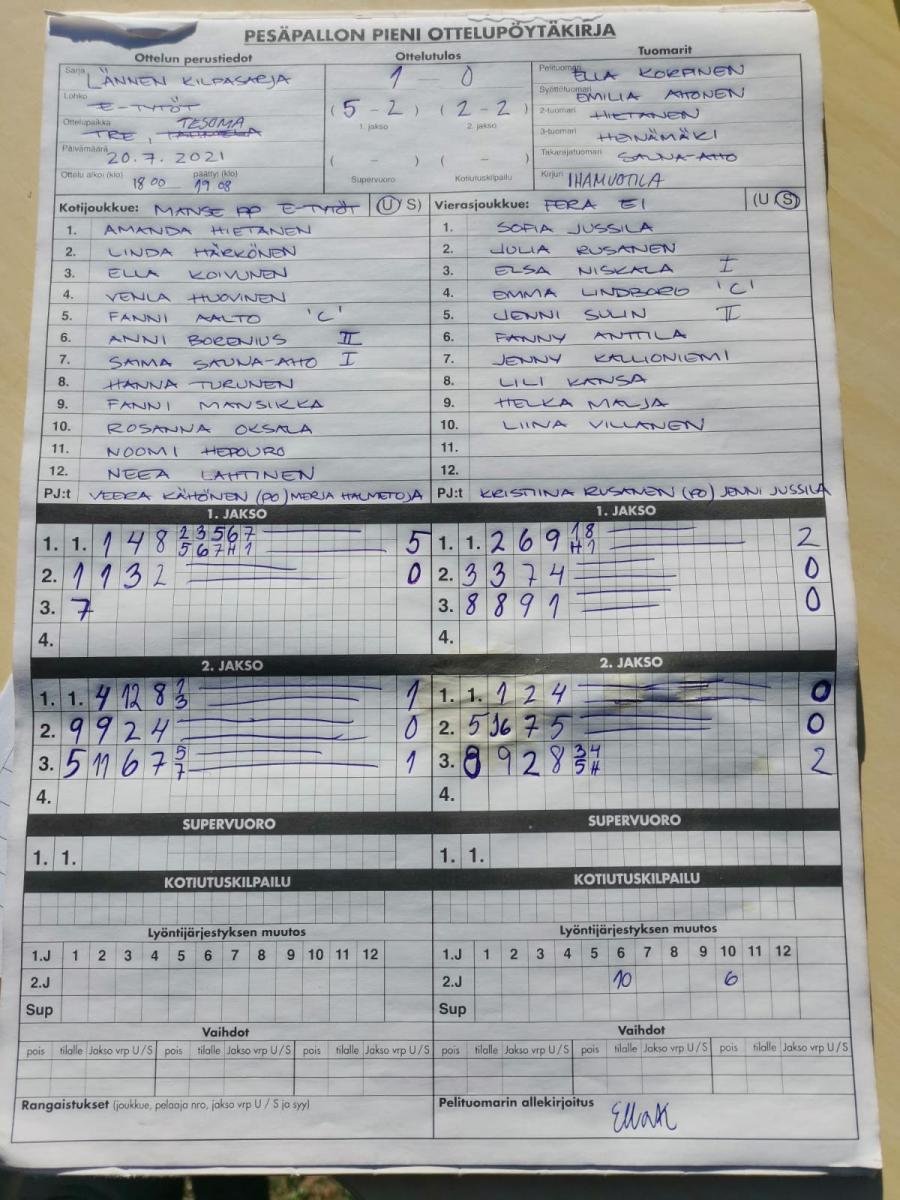 PESÄPALLON PIENI OTTELUPÖYTÄKIRJA
Ottelun perustiedot Ottelutulos Tuomarit
Sarja LÄNNEN KILPASARJA
1 - 0
Pelituomari ELLA KORPINEN
Lohko E-TYTÖT
(5 - 2) (2 - 2)
1. jakso 2. jakso
Syöttötuomari EMILIA AHONEN
Ottelupaikka TRE, TESOMA
2-tuomari HIETANEN
3-tuomari HEINÄMÄKI
Päivämäärä 20.7.2021
( - ) ( - )
Takarajatuomari SAUNA-AHO
Ottelu alkoi (klo) 18 00 päättyi (klo) 19 08
Supervuoro Kotiutuskilpailu
Kirjuri IHAMUOTILA
Kotijoukkue: MANSE PP E-TYTÖT (U S) Vierasjoukkue: FERA E1 (U S)
1. AMANDA HIETANEN 1. SOFIA JUSSILA
2. LINDA HÄRKÖNEN 2. JULIA RUSANEN
3. ELLA KOIVUNEN 3. ELSA NISKALA I
4. VENLA HUOVINEN 4. EMMA LINDBORG 'C'
5. FANNI AALTO 'C' 5. JENNI SULIN II
6. ANNI BORENIUS II 6. FANNY ANTTILA
7. SAIMA SAUNA-AHO I 7. JENNY KALLIONIEMI
8. HANNA TURUNEN 8. LILI KANSA
9. FANNI MANSIKKA 9. HELKA MALJA
10. ROSANNA OKSALA 10. LIINA VILLANEN
11. NOOMI HEPOURO 11.
12. NEEA LAHTINEN 12.
PJ:t VEERA KÄHÖNEN (PO) MERJA HALMETOJA PJ:t KRISTIINA RUSANEN (PO) JENNI JUSSILA
1. JAKSO 1. JAKSO
1. 1. 1 4 8 2 3 5 6 7 5 1. 1. 2 6 9 1 8 2
5 6 7 H 1 H 1
2. 1 1 3 2 0 2. 3 3 7 4 0
3. 7 3. 8 8 9 1 0
4. 4.
2. JAKSO 2. JAKSO
1. 1. 4 12 8 1 1. 1. 1 2 4 0
3
2. 9 9 2 4 0 2. 5 7 5 0
3. 5 11 6 7 5 1 3. 8 9 2 8 3 4 2
7 5 H
4. 4.
SUPERVUORO SUPERVUORO
1. 1. 1. 1.
KOTIUTUSKILPAILU KOTIUTUSKILPAILU
Lyöntijärjestyksen muutos Lyöntijärjestyksen muutos
1.J 1 2 3 4 5 6 7 8 9 10 11 12 1.J 1 2 3 4 5 6 7 8 9 10 11 12
2.J 2.J 10 6
Sup Sup
Vaihdot Vaihdot
pois tilalle Jakso vrp U/S pois tilalle Jakso vrp U/S pois tilalle Jakso vrp U/S pois tilalle Jakso vrp U/S pois tilalle Jakso vrp U/S pois tilalle Jakso vrp U/S
Rangaistukset (joukkue, pelaaja nro, jakso vrp U / S ja syy) Pelituomarin allekirjoitus
EllaK